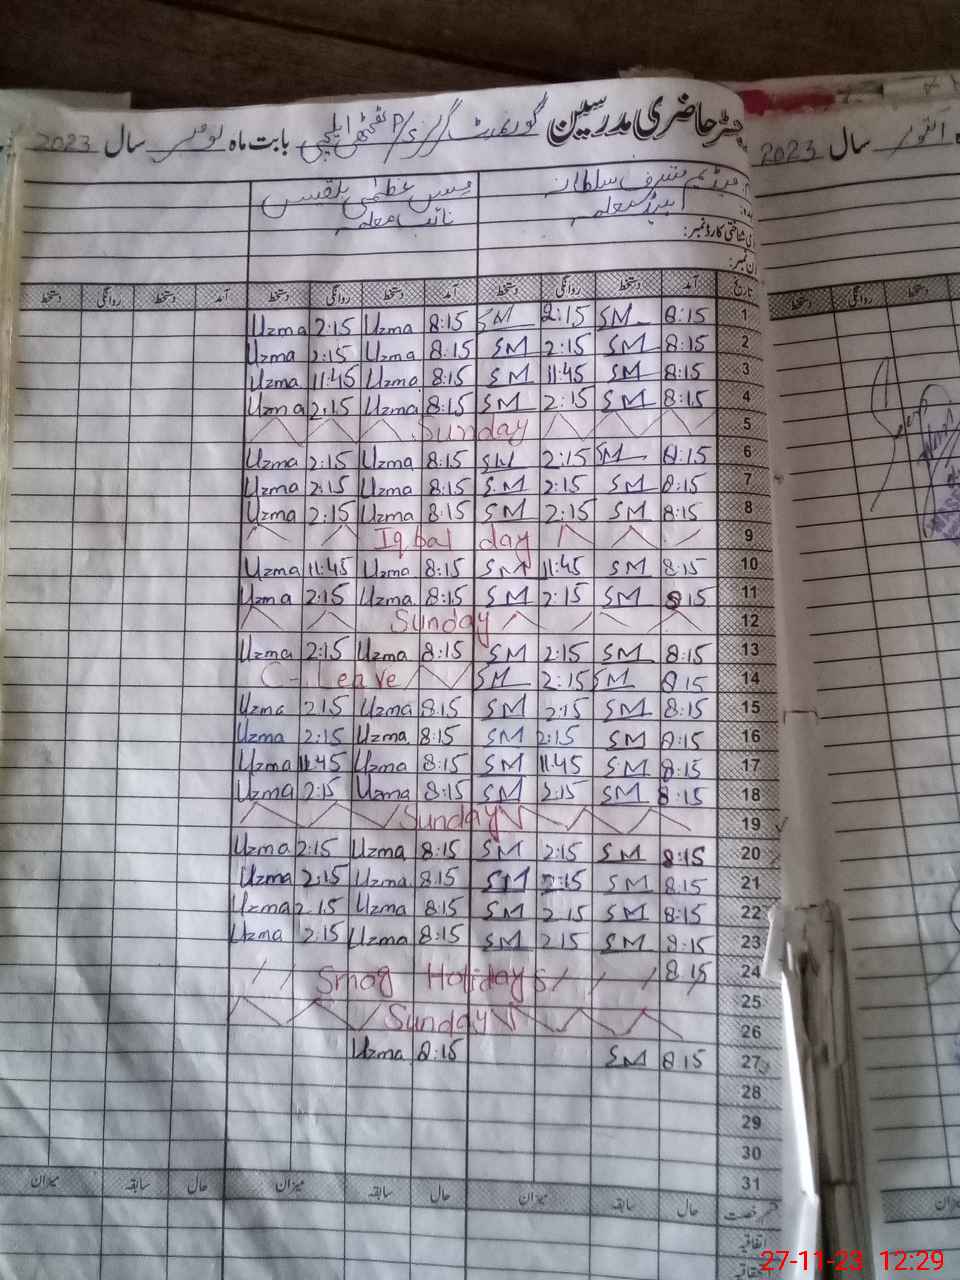 رجسٹر حاضری مدرسین گورنمنٹ گرلز P/S بابت ماہ نومبر سال 2023
میڈیم مشرف سلطانہ مس عظمیٰ بلقیس
ہیڈ معلمہ نائب معلمہ
شناختی کارڈ نمبر:
تاریخ آمد دستخط روانگی دستخط آمد دستخط روانگی دستخط آمد دستخط روانگی دستخط
1 8:15 SM 2:15 SM 8:15 Uzma 2:15 Uzma
2 8:15 SM 2:15 SM 8:15 Uzma 2:15 Uzma
3 8:15 SM 11:45 SM 8:15 Uzma 11:45 Uzma
4 8:15 SM 2:15 SM 8:15 Uzma 2:15 Uzma
5 Sunday
6 8:15 SM 2:15 SM 8:15 Uzma 2:15 Uzma
7 8:15 SM 2:15 SM 8:15 Uzma 2:15 Uzma
8 8:15 SM 2:15 SM 8:15 Uzma 2:15 Uzma
9 Iqbal day
10 8:15 SM 11:45 SM 8:15 Uzma 11:45 Uzma
11 8:15 SM 2:15 SM 8:15 Uzma 2:15 Uzma
12 Sunday
13 8:15 SM 2:15 SM 8:15 Uzma 2:15 Uzma
14 8:15 SM 2:15 SM C-Leave
15 8:15 SM 2:15 SM 8:15 Uzma 2:15 Uzma
16 8:15 SM 2:15 SM 8:15 Uzma 2:15 Uzma
17 8:15 SM 11:45 SM 8:15 Uzma 11:45 Uzma
18 8:15 SM 2:15 SM 8:15 Uzma 2:15 Uzma
19 Sunday
20 8:15 SM 2:15 SM 8:15 Uzma 2:15 Uzma
21 8:15 SM 2:15 SM 8:15 Uzma 2:15 Uzma
22 8:15 SM 2:15 SM 8:15 Uzma 2:15 Uzma
23 8:15 SM 2:15 SM 8:15 Uzma 2:15 Uzma
24 8:15 Smog Holidays
25
26 Sunday
27 8:15 SM 8:15 Uzma
28
29
30
31
حال سابقہ میزان حال سابقہ میزان حال سابقہ میزان
اتفاقیہ
اکتوبر سال 2023
دستخط روانگی دستخط
میزان
27-11-23 12:29